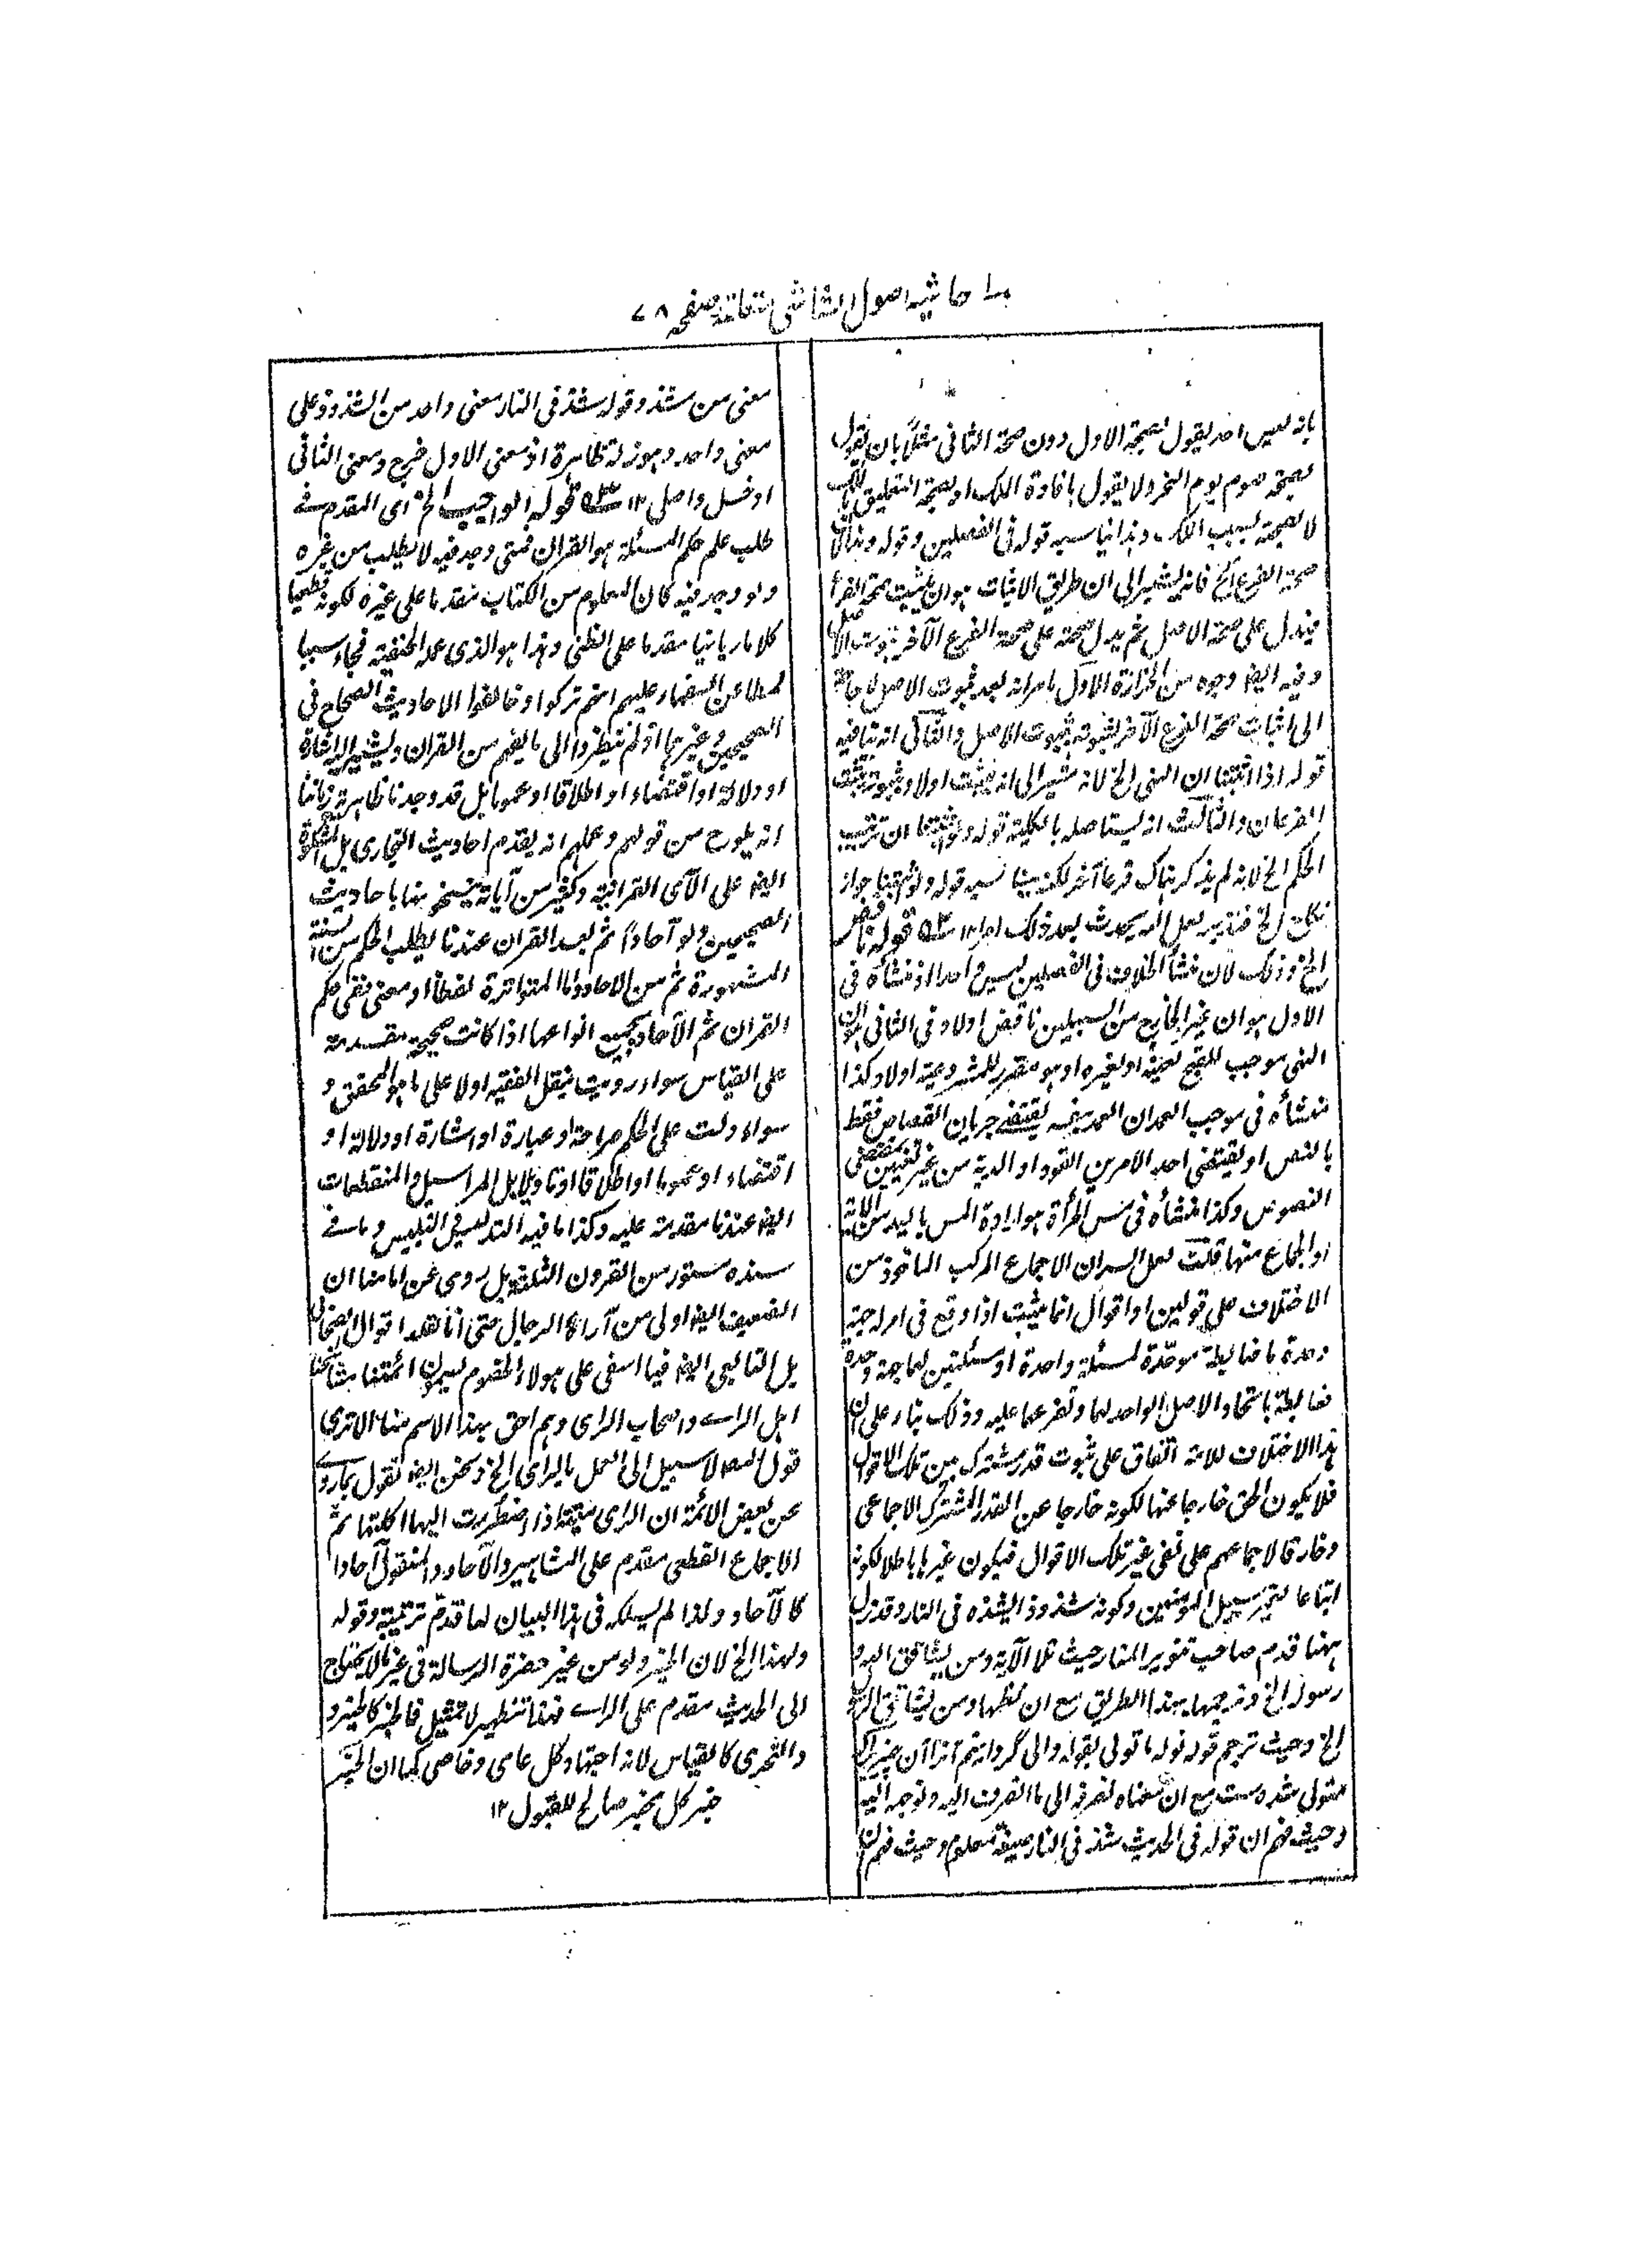 حاشیه اصول الشاشی متعلقة صفحه ٧٨
بانه ليس احد يقول بصحة الاول دون صحة الثانی مثلا بان يقول
بصحة صوم يوم النحر ولا يقول بافادة الملك او بصحة التعليق بالملك
لا بصحة بسبب الملك وهذا يناسبه قوله فی الفصلين وقوله وهذا
صحة الفرع الخ فانه يشير الی ان طريق الاثبات هو ان يثبت صحة الفرع
فيدل علی صحة الاصل ثم يدل صحته علی صحة الفرع الآخر بثبوت الاصل
وفيه ايضا وجوه من الحزازة الاول بامرانه بعد ثبوت الاصل لا حاجة
الی اثبات صحة الفرع الآخر لثبوته بثبوت الاصل والثانی انه ينافيه
قوله اذا اثبتنا ان النهی الخ لانه مشير الی انه يثبت اولا وبثبوته يثبت
الفرعان والثالث انه يستاصله بالكلية قوله ولو اثبتنا ان ترتيب
الحكم الخ لانه لم يذكر هناك فرعا آخر لكنه يناسبه قوله ولو اثبتنا جواز
نكاح الخ فتدبر لعل الله يحدث بعد ذلك امرا ١٢ قوله
الخ وذلك لان منشأ الخلاف فی الفصلين ليس واحدا اذ منشأه فی
الاول هو ان غير الخارج من السبيلين ناقض اولا وفی الثانی هو ان
النهی موجب للقبح لعينه او لغيره او هو مقرر للمشروعية اولا وكذا
منشأه فی موجب العمد ان العمد بنفسه يقتضی جريان القصاص فقط
بالنص او يقتضی احد الامرين القود او الدية من غير تعيين بمقتضی
النصوص وكذا منشأه فی مس المرأة هو ارادة المس باليد من الآية
او الجماع منها قلت لعل السر ان الاجماع المركب الماخوذ من
الاختلاف علی قولين او اقوال انما يثبت اذا وقع فی امر له جهة
وحدة ما ضابطة موحدة لمسئلة واحدة او مسئلتين لهما جهة وحدة
ضابطة باتحاد الاصل الواحد لهما وتفرعهما عليه وذلك بناء علی ان
هذا الاختلاف للامة اتفاق علی ثبوت قدر مشترك بين تلك الاقوال
فلا يكون الحق خارجا عنها لكونه خارجا عن القدر المشترك الاجماعی
وخارقا لاجماعهم علی نفی غير تلك الاقوال فيكون غيرها باطلا لكونه
اتباعا لغير سبيل المؤمنين وكونه شذوذا يشذه فی النار وقد زل
ههنا قدم صاحب تنوير المنار حيث تلا الآية ومن يشاقق الله و
رسوله الخ وترجمها بهذا الطريق مع ان نظمها ومن يشاقق الرسول
الخ وحيث ترجم قوله نوله ما تولی بقوله والی گردانيم آنرا آن چيز را كه
متولی شده است مع ان معناه نصرفه الی ما انصرف اليه وتوجه اليه
وحيث فهم ان قوله فی الحديث شذ فی النار صيغة معلوم وحيث فهم ان
معنی من شذ وقوله شذ فی النار معنی واحد من الشذوذ علی
معنی واحد وهو زلة ظاهرة اذ معنی الاول خرج ومعنی الثانی
ادخل واصلی ١٢ قوله الواجب الخ ای المقدم فی
طلب علم حكم المسئلة هو القران فمتی وجد فيه لا يطلب من غيره
ولو وجد فيه كان المعلوم من الكتاب مقدما علی غيره لكونه قطعيا
كلاما ربانيا مقدما علی الظنی وهذا هو الذی عمله الحنفية فجاء سببا
لمطاعن السفهاء عليهم انهم تركوا وخالفوا الاحاديث الصحاح فی
الصحيحين وغيرهما اذ لم ينظروا الی ما يفهم من القران ويشير اليه اشارة
او دلالة او اقتضاء او اطلاقا او عموما بل قد وجدنا ظاهرية زماننا
انه يلوح من قولهم وعملهم انه يقدم احاديث البخاری بل المشكوة
ايضا علی الآی القرانية وكثير من آياته ينسخونها باحاديث
الصحيحين ولو آحادا ثم بعد القران عندنا يطلب الحكم من السنة
المشهورة ثم من الاحاديث المتواترة لفظا او معنی ففی حكم
القران ثم الآحاد بجميع انواعها اذا كانت صحيحة مقدمة
علی القياس سواء رويت بنقل الفقيه اولا علی ما هو المحقق و
سواء دلت علی الحكم صراحة او عبارة او اشارة او دلالة او
اقتضاء او عموما او اطلاقا او تاويلا بل المراسيل والمنقطعات
ايضا عندنا مقدمة عليه وكذا ما فيه التدليس والتلبيس وما فی
سنده مستور من القرون الثلثة بل روی عن امامنا ان
الضعيف ايضا اولی من آراء الرجال حتی انا نقلد اقوال الصحابی
بل التابعی ايضا فيا اسفی علی هولاء القوم يسمون ائمتنا
اهل الرای واصحاب الرای وهم احق بهذا الاسم منا الا تری
قول المصـ لا سبيل الی العمل بالرای الخ ونحن ايضا نقول بما روی
عن بعض الائمة ان الرای ميتة اذا اضطررت اليها اكلتها ثم
الاجماع القطعی مقدم علی المشاهير والآحاد والمنقول آحادا
كالآحاد ولذا لم يسلكه فی هذا البيان لما قدم ترتيبه وقوله
ولهذا الخ لان الخبر ولو من غير حضرة الرسالة فی غير ما لا يحتاج
الی الحديث مقدم علی الرای فهذا تنظير لا تمثيل فالخبر كالخبر و
والتحری كالقياس لانه اجتهاد كل عامی وخاصی كما ان الخبر
خبر كل مخبر صالح للقبول ١٢